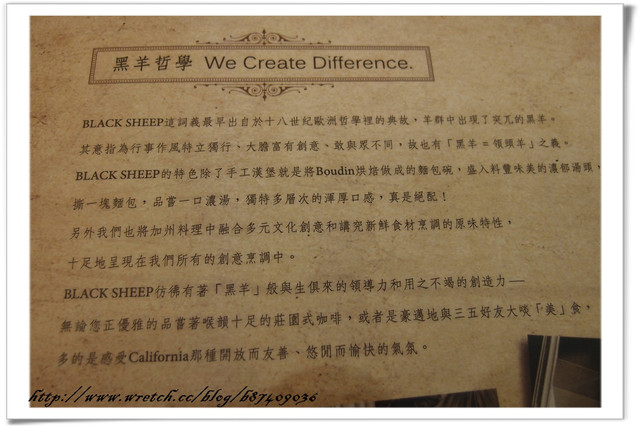 黑羊哲學 We Create Difference.
BLACK SHEEP這詞義最早出自於十八世紀歐洲哲學裡的典故，羊群中出現了突兀的黑羊。
其意指為行事作風特立獨行、大膽富有創意、敢與眾不同，故也有「黑羊 = 領頭羊」之義。
BLACK SHEEP的特色除了手工漢堡就是將Boudin烘焙做成的麵包碗，盛入料豐味美的濃郁湯頭，
撕一塊麵包，品嘗一口濃湯，獨特多層次的渾厚口感，真是絕配！
另外我們也將加州料理中融合多元文化創意和講究新鮮食材烹調的原味特性，
十足地呈現在我們所有的創意烹調中。
BLACK SHEEP彷彿有著「黑羊」般與生俱來的領導力和用之不竭的創造力—
無論您正優雅的品嘗著喉韻十足的莊園式咖啡，或者是豪邁地與三五好友大啖「美」食，
多的是感受California那種開放而友善、悠閒而愉快的氣氛。
http://www.wretch.cc/blog/b87409036